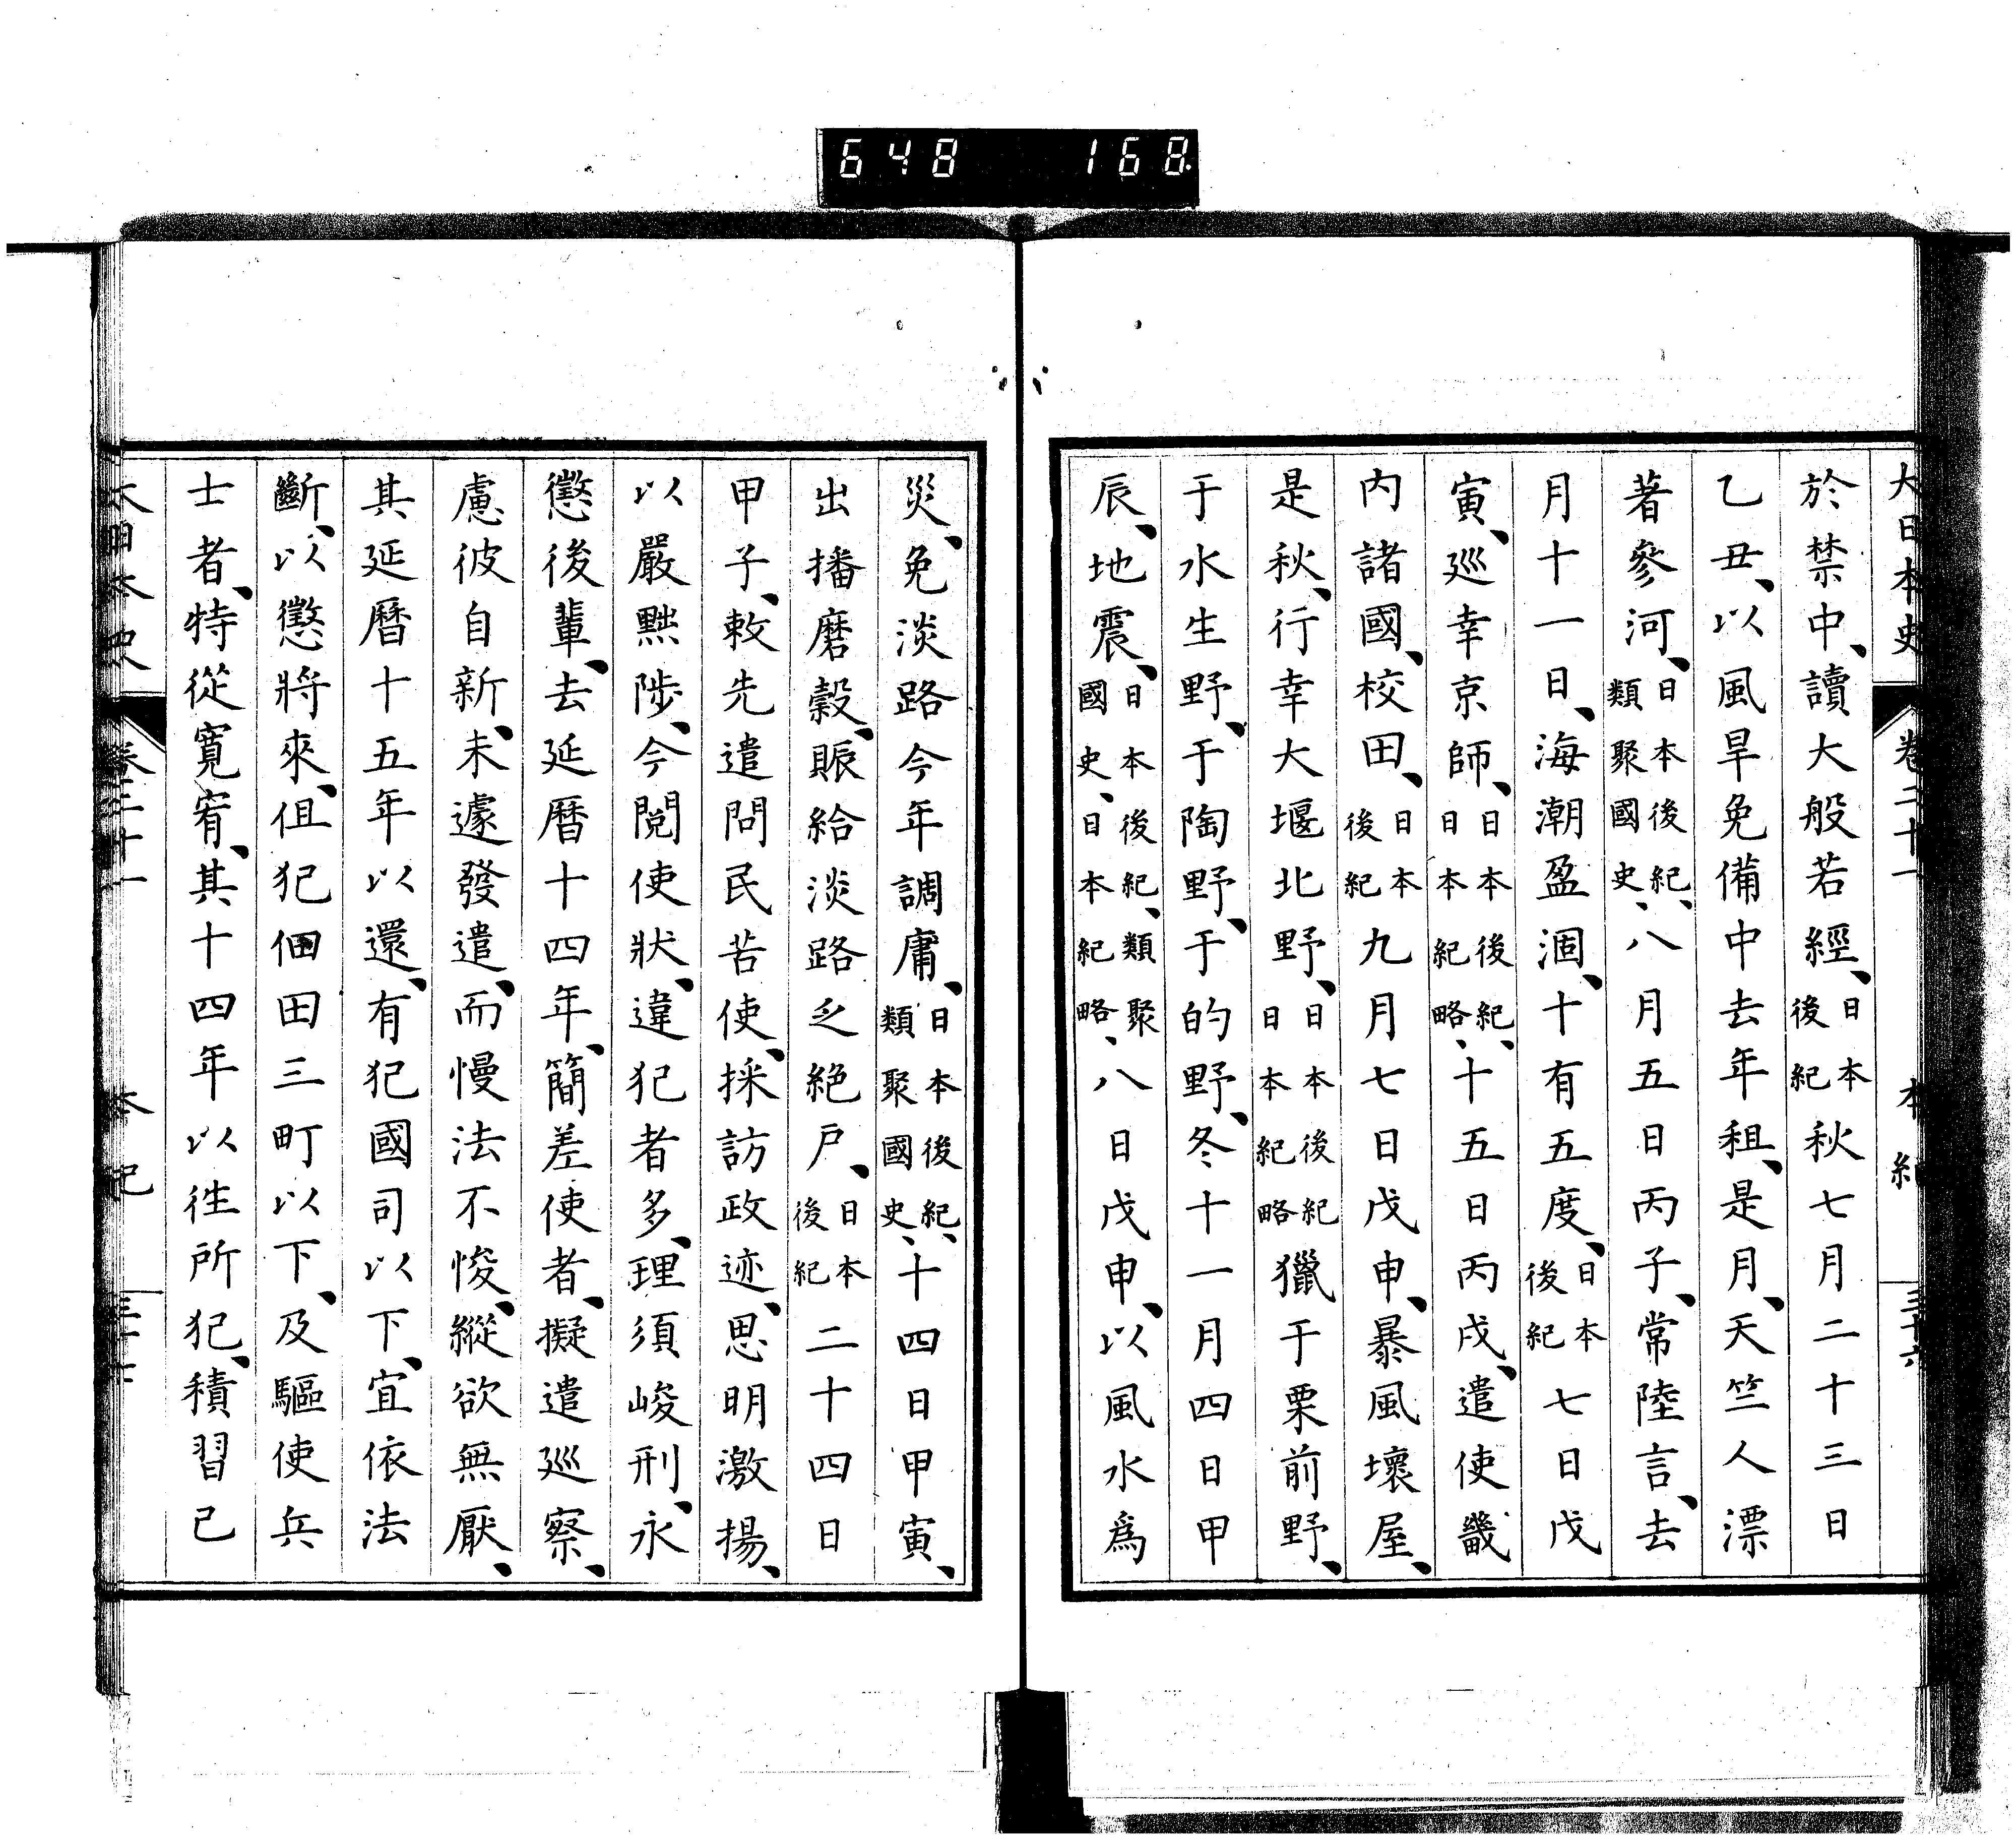 648 168
大日本史 卷二十一 本紀 三十六
於禁中、讀大般若經、日本後紀秋七月二十三日
乙丑、以風旱免備中去年租、是月、天竺人漂
著參河、日本後紀、類聚國史、八月五日丙子、常陸言、去
月十一日、海潮盈涸、十有五度、日本後紀七日戊
寅、巡幸京師、日本後紀、日本紀略、十五日丙戌、遣使畿
內諸國、校田、日本後紀九月七日戊申、暴風壞屋、
是秋、行幸大堰北野、日本後紀日本紀略獵于栗前野、
于水生野、于陶野、于的野、冬十一月四日甲
辰、地震、日本後紀、類聚國史、日本紀略、八日戊申、以風水爲
災、免淡路今年調庸、日本後紀、類聚國史、十四日甲寅、
出播磨穀、賑給淡路乏絕戶、日本後紀二十四日
甲子、敕先遣問民苦使、採訪政迹、思明激揚、
以嚴黜陟、今閱使狀、違犯者多、理須峻刑、永
懲後輩、去延曆十四年、簡差使者、擬遣巡察、
慮彼自新、未遽發遣、而慢法不悛、縱欲無厭、
其延曆十五年以還、有犯國司以下、宜依法
斷、以懲將來、但犯佃田三町以下、及驅使兵
士者、特從寬宥、其十四年以往所犯、積習已
大日本史 卷二十一 本紀